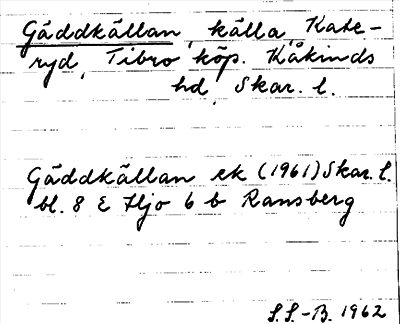 Gäddkällan, källa, Kate-
ryd, Tibro köp. Kåkinds
hd, Skar. l.
Gäddkällan ek (1961) Skar. l.
bl. 8 E Hjo 6 b Ransberg
S.S.-B. 1962